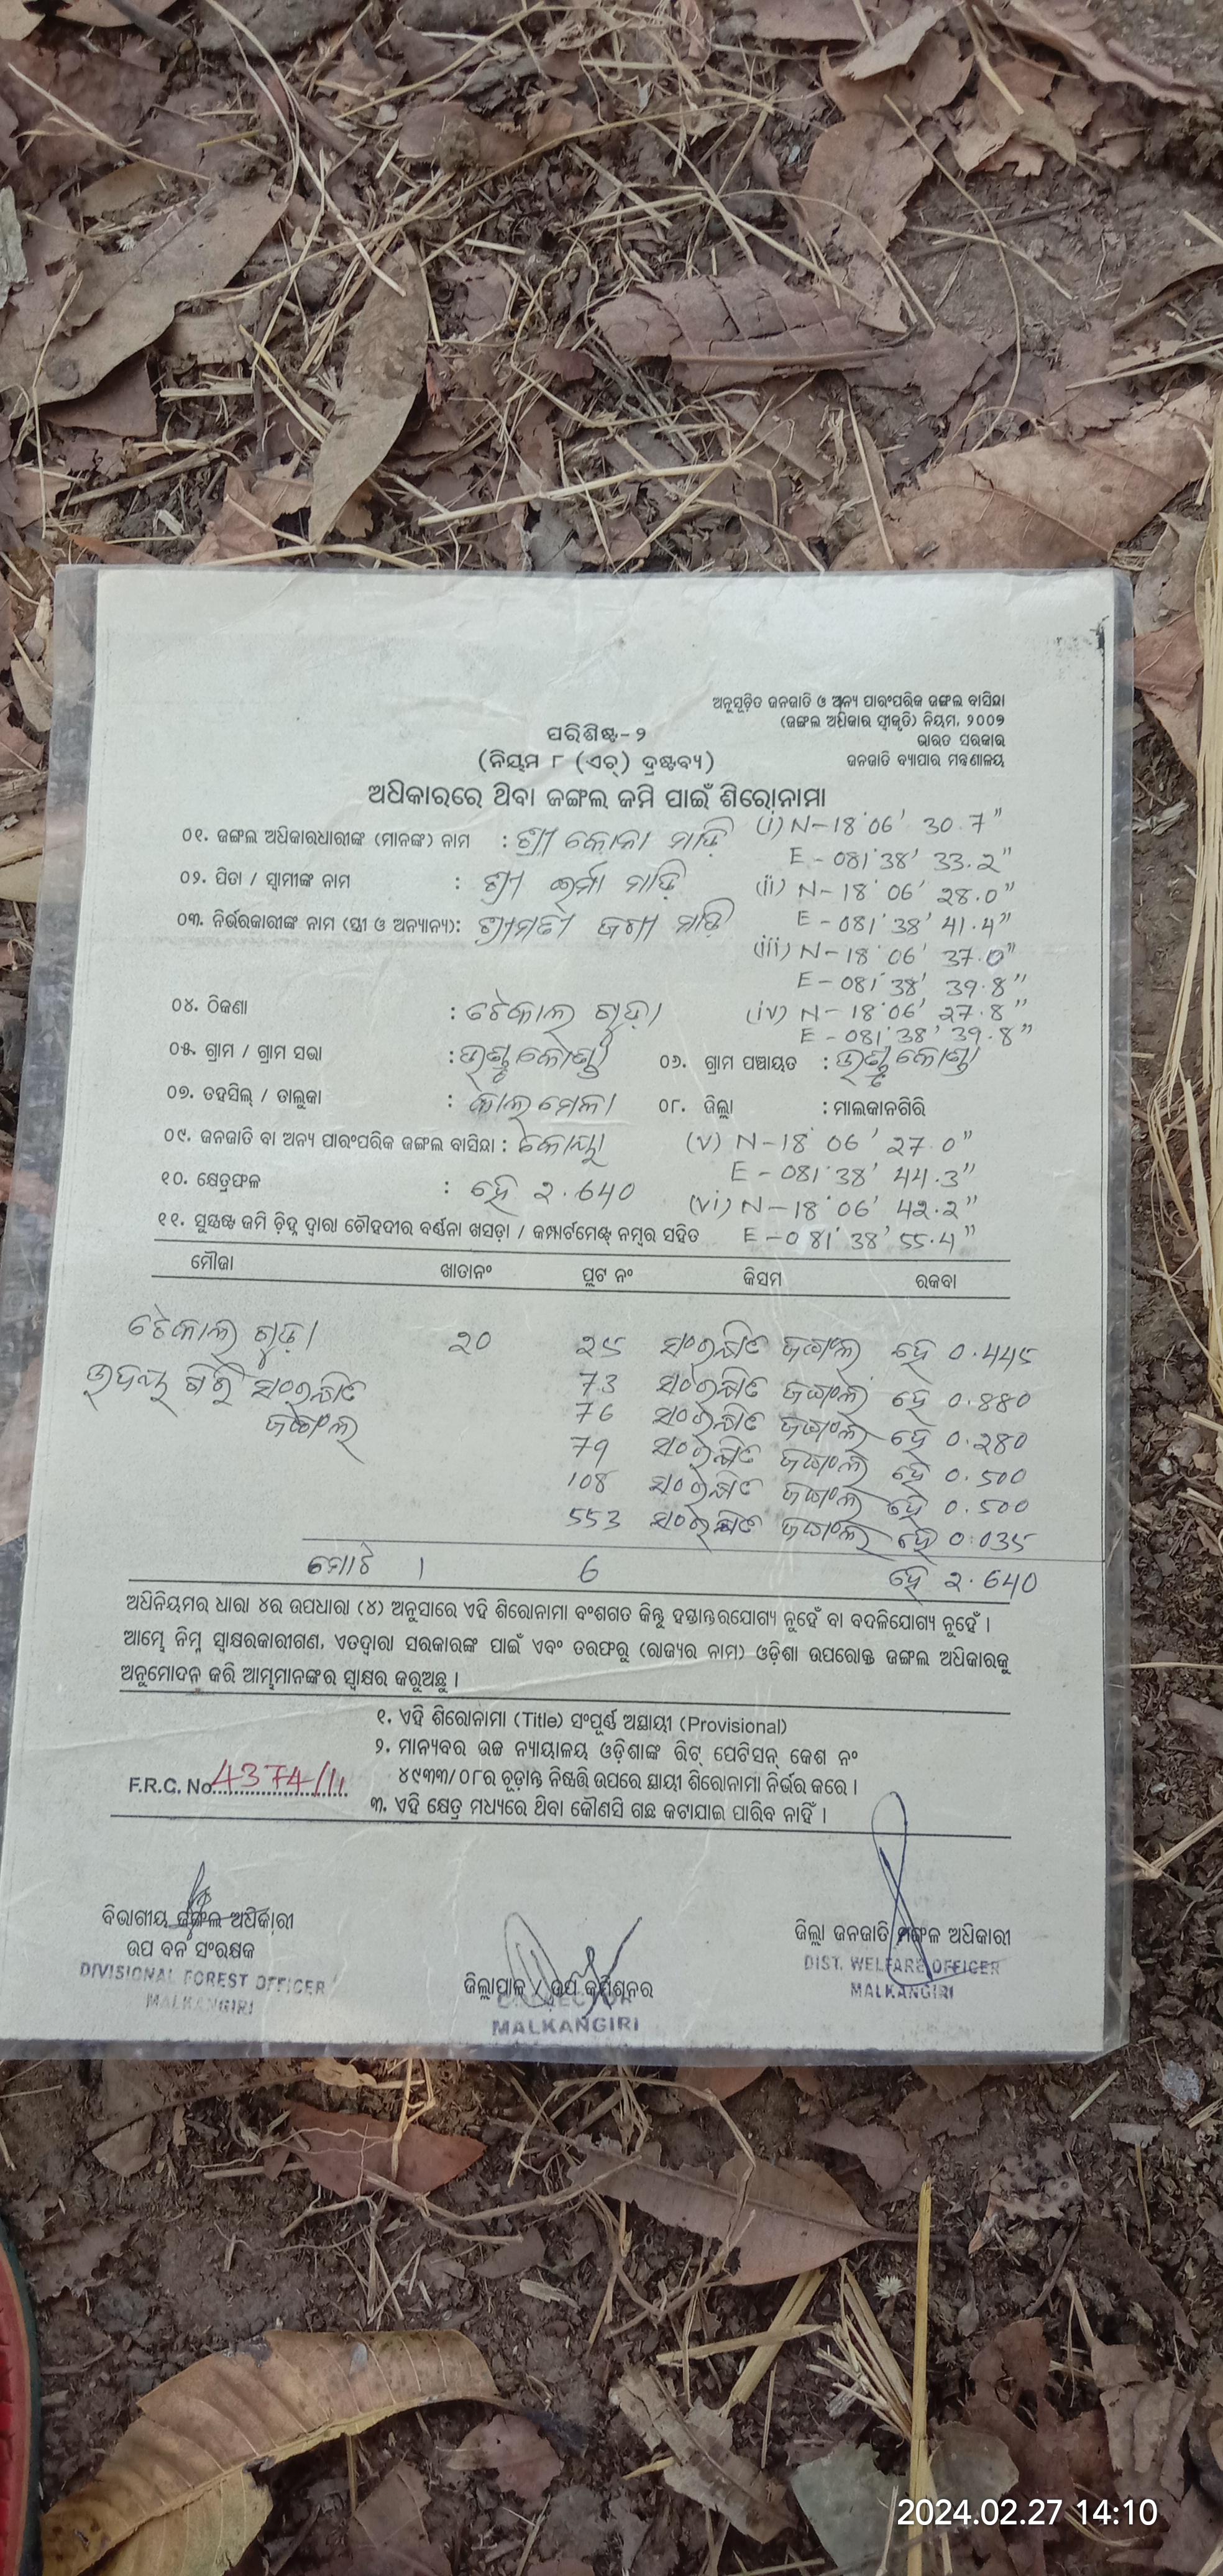 ଅନୁସୂଚିତ ଜନଜାତି ଓ ଅନ୍ୟ ପାରଂପରିକ ଜଙ୍ଗଲ ବାସିନ୍ଦା
(ଜଙ୍ଗଲ ଅଧିକାର ସ୍ୱୀକୃତି) ନିୟମ, ୨୦୦୭
ଭାରତ ସରକାର
ଜନଜାତି ବ୍ୟାପାର ମନ୍ତ୍ରଣାଳୟ
ପରିଶିଷ୍ଟ-୨
(ନିୟମ ୮ (ଏଚ୍) ଦ୍ରଷ୍ଟବ୍ୟ)
ଅଧିକାରରେ ଥିବା ଜଙ୍ଗଲ ଜମି ପାଇଁ ଶିରୋନାମା
୦୧. ଜଙ୍ଗଲ ଅଧିକାରଧାରୀଙ୍କ (ମାନଙ୍କ) ନାମ : ଶ୍ରୀ କୋନା ମାଡ଼ି (i) N-18°06' 30.7"
E-081°38' 33.2"
୦୨. ପିତା / ସ୍ୱାମୀଙ୍କ ନାମ : ଶ୍ରୀ ଇର୍ମା ମାଡ଼ି (ii) N-18°06' 28.0"
E-081°38' 41.4"
୦୩. ନିର୍ଭରକାରୀଙ୍କ ନାମ (ସ୍ତ୍ରୀ ଓ ଅନ୍ୟାନ୍ୟ): ଶ୍ରୀମତୀ ମାଡ଼ି
(iii) N-18°06' 37.0"
E-081°38' 39.8"
୦୪. ଠିକଣା : ଟେକାଲ ଗୁଡ଼ା (iv) N-18°06' 27.8"
E-081°38' 39.8"
୦୫. ଗ୍ରାମ / ଗ୍ରାମ ସଭା : ୦୬. ଗ୍ରାମ ପଞ୍ଚାୟତ :
୦୭. ତହସିଲ୍ / ତାଲୁକା : କାଲିମେଳା ୦୮. ଜିଲ୍ଲା : ମାଲକାନଗିରି
୦୯. ଜନଜାତି ବା ଅନ୍ୟ ପାରଂପରିକ ଜଙ୍ଗଲ ବାସିନ୍ଦା : କୋୟା (v) N-18°06' 27.0"
E-081°38' 44.3"
୧୦. କ୍ଷେତ୍ରଫଳ : ହେ ୨.640 (vi) N-18°06' 42.2"
E-081°38' 55.4"
୧୧. ସୁସ୍ପଷ୍ଟ ଜମି ଚିହ୍ନ ଦ୍ୱାରା ଚୌହଦୀର ବର୍ଣ୍ଣନା ଖସଡ଼ା / କମ୍ପାର୍ଟମେଣ୍ଟ୍ ନମ୍ବର ସହିତ
ମୌଜା ଖାତାନଂ ପ୍ଲଟ ନଂ କିସମ ରକବା
ଟେକାଲ ଗୁଡ଼ା ୨0 25 ସଂରକ୍ଷିତ ଜଙ୍ଗଲ ହେ 0.445
ଉଦୟ ଗିରି ସଂରକ୍ଷିତ 73 ସଂରକ୍ଷିତ ଜଙ୍ଗଲ ହେ 0.880
ଜଙ୍ଗଲ 76 ସଂରକ୍ଷିତ ଜଙ୍ଗଲ ହେ 0.280
79 ସଂରକ୍ଷିତ ଜଙ୍ଗଲ ହେ 0.500
108 ସଂରକ୍ଷିତ ଜଙ୍ଗଲ ହେ 0.500
553 ସଂରକ୍ଷିତ ଜଙ୍ଗଲ ହେ 0.035
ମୋଟ 1 6 ହେ ୨.640
ଅଧିନିୟମର ଧାରା ୪ର ଉପଧାରା (୪) ଅନୁସାରେ ଏହି ଶିରୋନାମା ବଂଶଗତ କିନ୍ତୁ ହସ୍ତାନ୍ତରଯୋଗ୍ୟ ନୁହେଁ ବା ବଦଳିଯୋଗ୍ୟ ନୁହେଁ ।
ଆମ୍ଭେ ନିମ୍ନ ସ୍ୱାକ୍ଷରକାରୀଗଣ, ଏତଦ୍ୱାରା ସରକାରଙ୍କ ପାଇଁ ଏବଂ ତରଫରୁ (ରାଜ୍ୟର ନାମ) ଓଡ଼ିଶା ଉପରୋକ୍ତ ଜଙ୍ଗଲ ଅଧିକାରକୁ
ଅନୁମୋଦନ କରି ଆମ୍ଭମାନଙ୍କର ସ୍ୱାକ୍ଷର କରୁଅଛୁ ।
୧. ଏହି ଶିରୋନାମା (Title) ସଂପୂର୍ଣ୍ଣ ଅସ୍ଥାୟୀ (Provisional)
୨. ମାନ୍ୟବର ଉଚ୍ଚ ନ୍ୟାୟାଳୟ ଓଡ଼ିଶାଙ୍କ ରିଟ୍ ପେଟିସନ୍ କେଶ ନଂ
୪୯୩୩/୦୮ର ଚୂଡ଼ାନ୍ତ ନିଷ୍ପତ୍ତି ଉପରେ ସ୍ଥାୟୀ ଶିରୋନାମା ନିର୍ଭର କରେ ।
F.R.C. No. 4374/11
୩. ଏହି କ୍ଷେତ୍ର ମଧ୍ୟରେ ଥିବା କୌଣସି ଗଛ କଟାଯାଇ ପାରିବ ନାହିଁ ।
ବିଭାଗୀୟ ଜଙ୍ଗଲ ଅଧିକାରୀ
ଉପ ବନ ସଂରକ୍ଷକ
DIVISIONAL FOREST OFFICER
MALKANGIRI
ଜିଲ୍ଲାପାଳ / ଉପ କମିଶନର
COLLECTOR
MALKANGIRI
ଜିଲ୍ଲା ଜନଜାତି ମଙ୍ଗଳ ଅଧିକାରୀ
DIST. WELFARE OFFICER
MALKANGIRI
2024.02.27 14:10